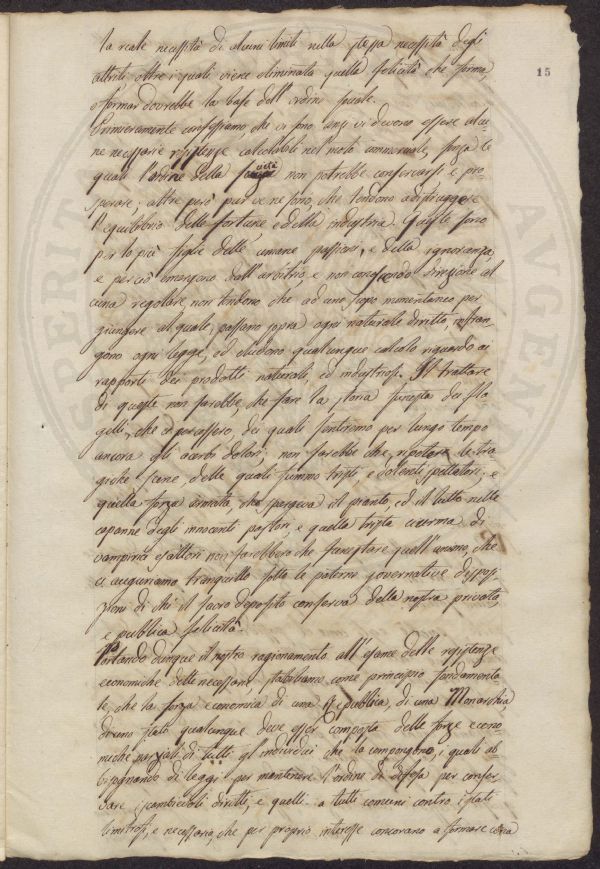 la reale necessità di alcuni limiti nella stessa necessità degli
attriti oltre i quali viene eliminata quella felicità che forma,
o formar dovrebbe la base dell'ordine sociale.
15
Primieramente confessiamo, che vi sono anzi vi devono essere alcu-
ne necessarie resistenze calcolabili nel moto commerciale, senza le
quali l'ordine della società non potrebbe conservarsi e pro-
sperare; altre però pur ve ne sono, che tendono a distruggere
l'equilibrio delle fortune, e della industria. Queste sono
per lo più figlie delle umane passioni, e della ignoranza,
e perciò emergono dall'arbitrio, e non conoscendo direzione al
cuna regolare, non tendono che ad uno scopo momentaneo per
giungere al quale, passano sopra ogni naturale diritto, infran-
gono ogni legge, ed eludono qualunque calcolo riguardo ai
rapporti dei prodotti naturali, ed industriosi. Il trattare
di queste non sarebbe che fare la storia funesta dei fla
gelli, che ci percossero, dei quali sentiremo per lungo tempo
ancora gli acerbi dolori; non sarebbe che ripetere le tra
giche scene, delle quali fummo tristi e dolenti spettatori; e
quella forza armata, che spargeva il pianto, ed il lutto nelle
capanne degli innocenti pastori, e quella trista ciurma di
vampirici esattori non farebbero che funestare quell'animo, che
ci auguriamo tranquillo sotto le paterne governative disposi
zioni di chi il sacro deposito conserva della nostra privata,
e pubblica felicità.
Portando dunque il nostro ragionamento all'esame delle resistenze
economiche dette necessarie, stabiliamo come principio fondamenta
le, che la forza economica di una Repubblica, di una Monarchia
di uno stato qualunque deve esser composta delle forze econo-
miche parziali di tutti gl'individui che lo compongono, i quali ab
bisognando di leggi per mantenere l'ordine, di difesa per conser
vare i scambievoli diritti, e quelli a tutti comuni contro i stati
limitrofi, è necessario, che per proprio interesse concorano a formare